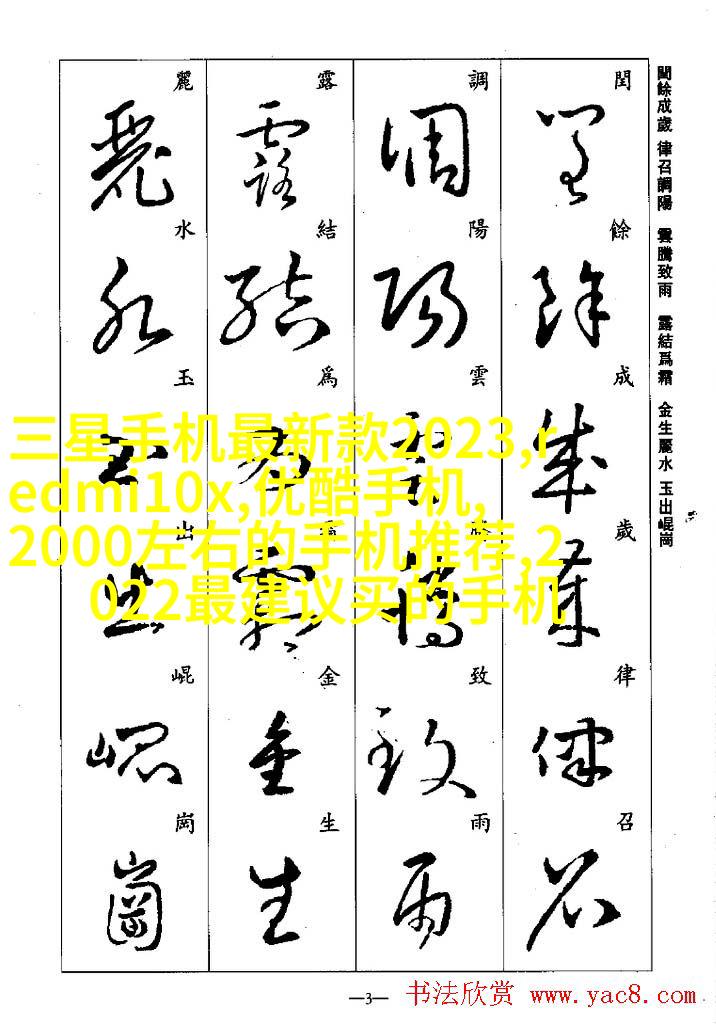 閏餘成歲 律召調陽 雲騰致雨 露結爲霜 金生麗水 玉出崐崗
閏餘成歲律召
閏餘成歲律召
調陽雲騰致雨
調陽雲騰致雨
露結爲霜金生
露結爲霜金生
麗水玉出崐崗
麗水玉出崐崗
三星手机最新款2023,r
edmi10x,优酷手机,
2000左右的手机推荐,2
022最建议买的手机
—3—
书法欣赏 www.yac8.com